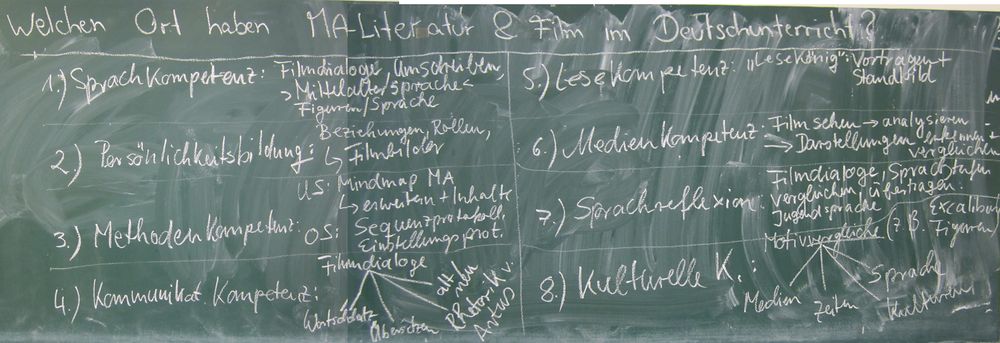 Welchen Ort haben MALiteratur & Film im Deutschunterricht?
1.) Sprachkompetenz: Filmdialoge, Umschreiben,
"Mittelaltersprache"
Figuren/Sprache
2.) Persönlichkeitsbildung: Beziehungen, Rollen,
↳ Filmbilder
3.) Methodenkompetenz: US: Mindmap MA
↳ erweitern + Inhalte
OS: Sequenzprotokoll.
Einstellungsprot.
4.) Kommunikat. Kompetenz: Filmdialoge
Wortschatz
Übersetzen
alt
neu
Rhetorik v.
Artus
5.) Lesekompetenz: "Lesekönig": Vortragen +
Standbild
6.) Medienkompetenz: Film sehen → analysieren
⇒ Darstellungen erkennen +
vergleichen
7.) Sprachreflexion: Filmdialoge, Sprachstufen
vergleichen, übertragen.
Jugendsprache
8.) Kulturelle K.: Motivvergleiche (z.B. Excalibur,
Figuren)
Medien
Zeiten
Sprache
Kulturen